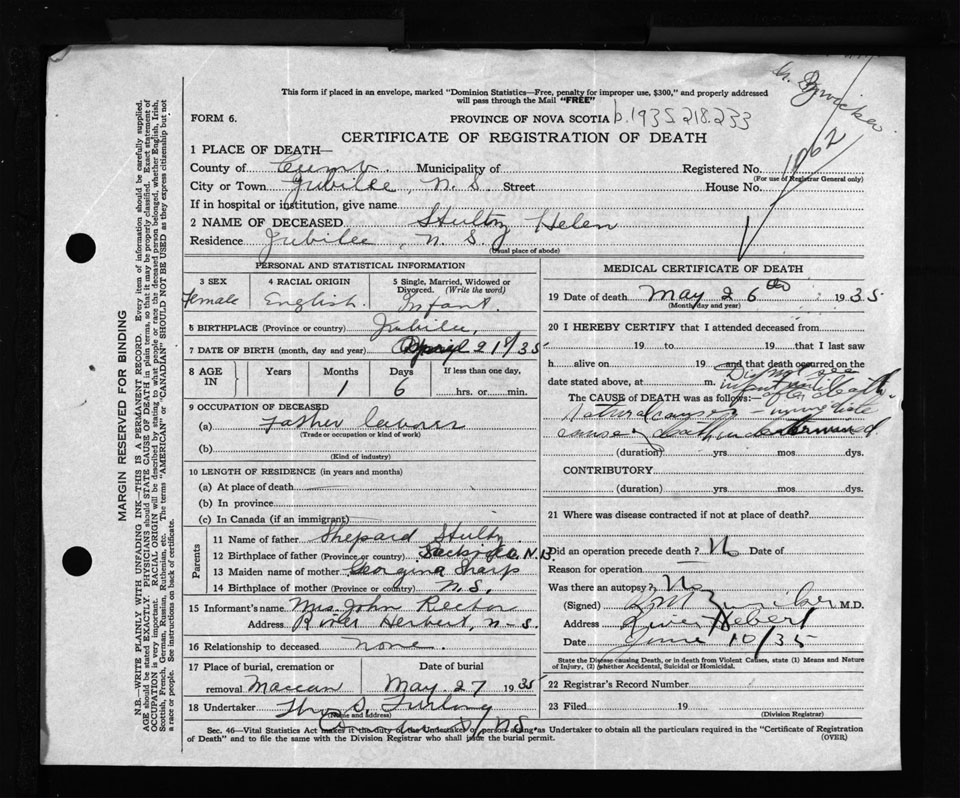 This form if placed in an envelope, marked "Dominion Statistics—Free, penalty for improper use, $300," and properly addressed
will pass through the Mail "FREE"
FORM 6. PROVINCE OF NOVA SCOTIA b.1935 218.233
CERTIFICATE OF REGISTRATION OF DEATH
1 PLACE OF DEATH—
County of Cumb Municipality of Registered No. 1062
(For use of Registrar General only)
City or Town Jubilee, N. S. Street House No.
If in hospital or institution, give name
2 NAME OF DECEASED Stultz Helen
Residence Jubilee, N. S. (Usual place of abode)
PERSONAL AND STATISTICAL INFORMATION
3 SEX 4 RACIAL ORIGIN 5 Single, Married, Widowed or Divorced. (Write the word)
Female English. Infant.
6 BIRTHPLACE (Province or country) Jubilee,
7 DATE OF BIRTH (month, day and year) April 21/35
8 AGE IN Years Months Days If less than one day,
1 6 hrs. or min.
9 OCCUPATION OF DECEASED
(a) Father labourer
(Trade or occupation or kind of work)
(b)
(Kind of industry)
10 LENGTH OF RESIDENCE (in years and months)
(a) At place of death
(b) In province
(c) In Canada (if an immigrant)
Parents
11 Name of father Shepard Stultz
12 Birthplace of father (Province or country) Sackville N.B.
13 Maiden name of mother Georgina Sharp
14 Birthplace of mother (Province or country) N.S.
15 Informant's name Mrs. John Rector
Address River Herbert, N-S.
16 Relationship to deceased none.
17 Place of burial, cremation or removal Maccan Date of burial May 27 1935
18 Undertaker Furlong
(Name and address)
N.S.
MEDICAL CERTIFICATE OF DEATH
19 Date of death May 26th 1935
(Month day and year)
20 I HEREBY CERTIFY that I attended deceased from
19 to 19 that I last saw
h alive on 19 and that death occurred on the
date stated above, at m. Did not see
infant until after death.
The CAUSE of DEATH was as follows:—
Natural causes – immediate
cause of death undetermined
(duration) yrs mos dys.
CONTRIBUTORY
(duration) yrs mos dys.
21 Where was disease contracted if not at place of death?
Did an operation precede death? No Date of
Reason for operation
Was there an autopsy? No
(Signed) M.D.
Address River Hebert
Date June 10/35
State the Disease causing Death, or in death from Violent Causes, state (1) Means and Nature
of Injury, (2) whether Accidental, Suicidal or Homicidal.
22 Registrar's Record Number
23 Filed 19
(Division Registrar)
Sec. 46—Vital Statistics Act makes it the duty of the Undertaker or person acting as Undertaker to obtain all the particulars required in the "Certificate of Registration
of Death" and to file the same with the Division Registrar who shall issue the burial permit. (OVER)
MARGIN RESERVED FOR BINDING
N.B.—WRITE PLAINLY WITH UNFADING INK—THIS IS A PERMANENT RECORD. Every item of information should be carefully supplied.
AGE should be stated EXACTLY. PHYSICIANS should STATE CAUSE OF DEATH in plain terms, so that it may be properly classified. Exact statement of
OCCUPATION is very important. RACIAL ORIGIN will be described by stating to what people or race the deceased person belonged, whether English, Irish,
Scottish, French, German, Russian, Ruthenian, etc. The terms "AMERICAN" or "CANADIAN" SHOULD NOT BE USED as they express citizenship but not
a race or people. See instructions on back of certificate.